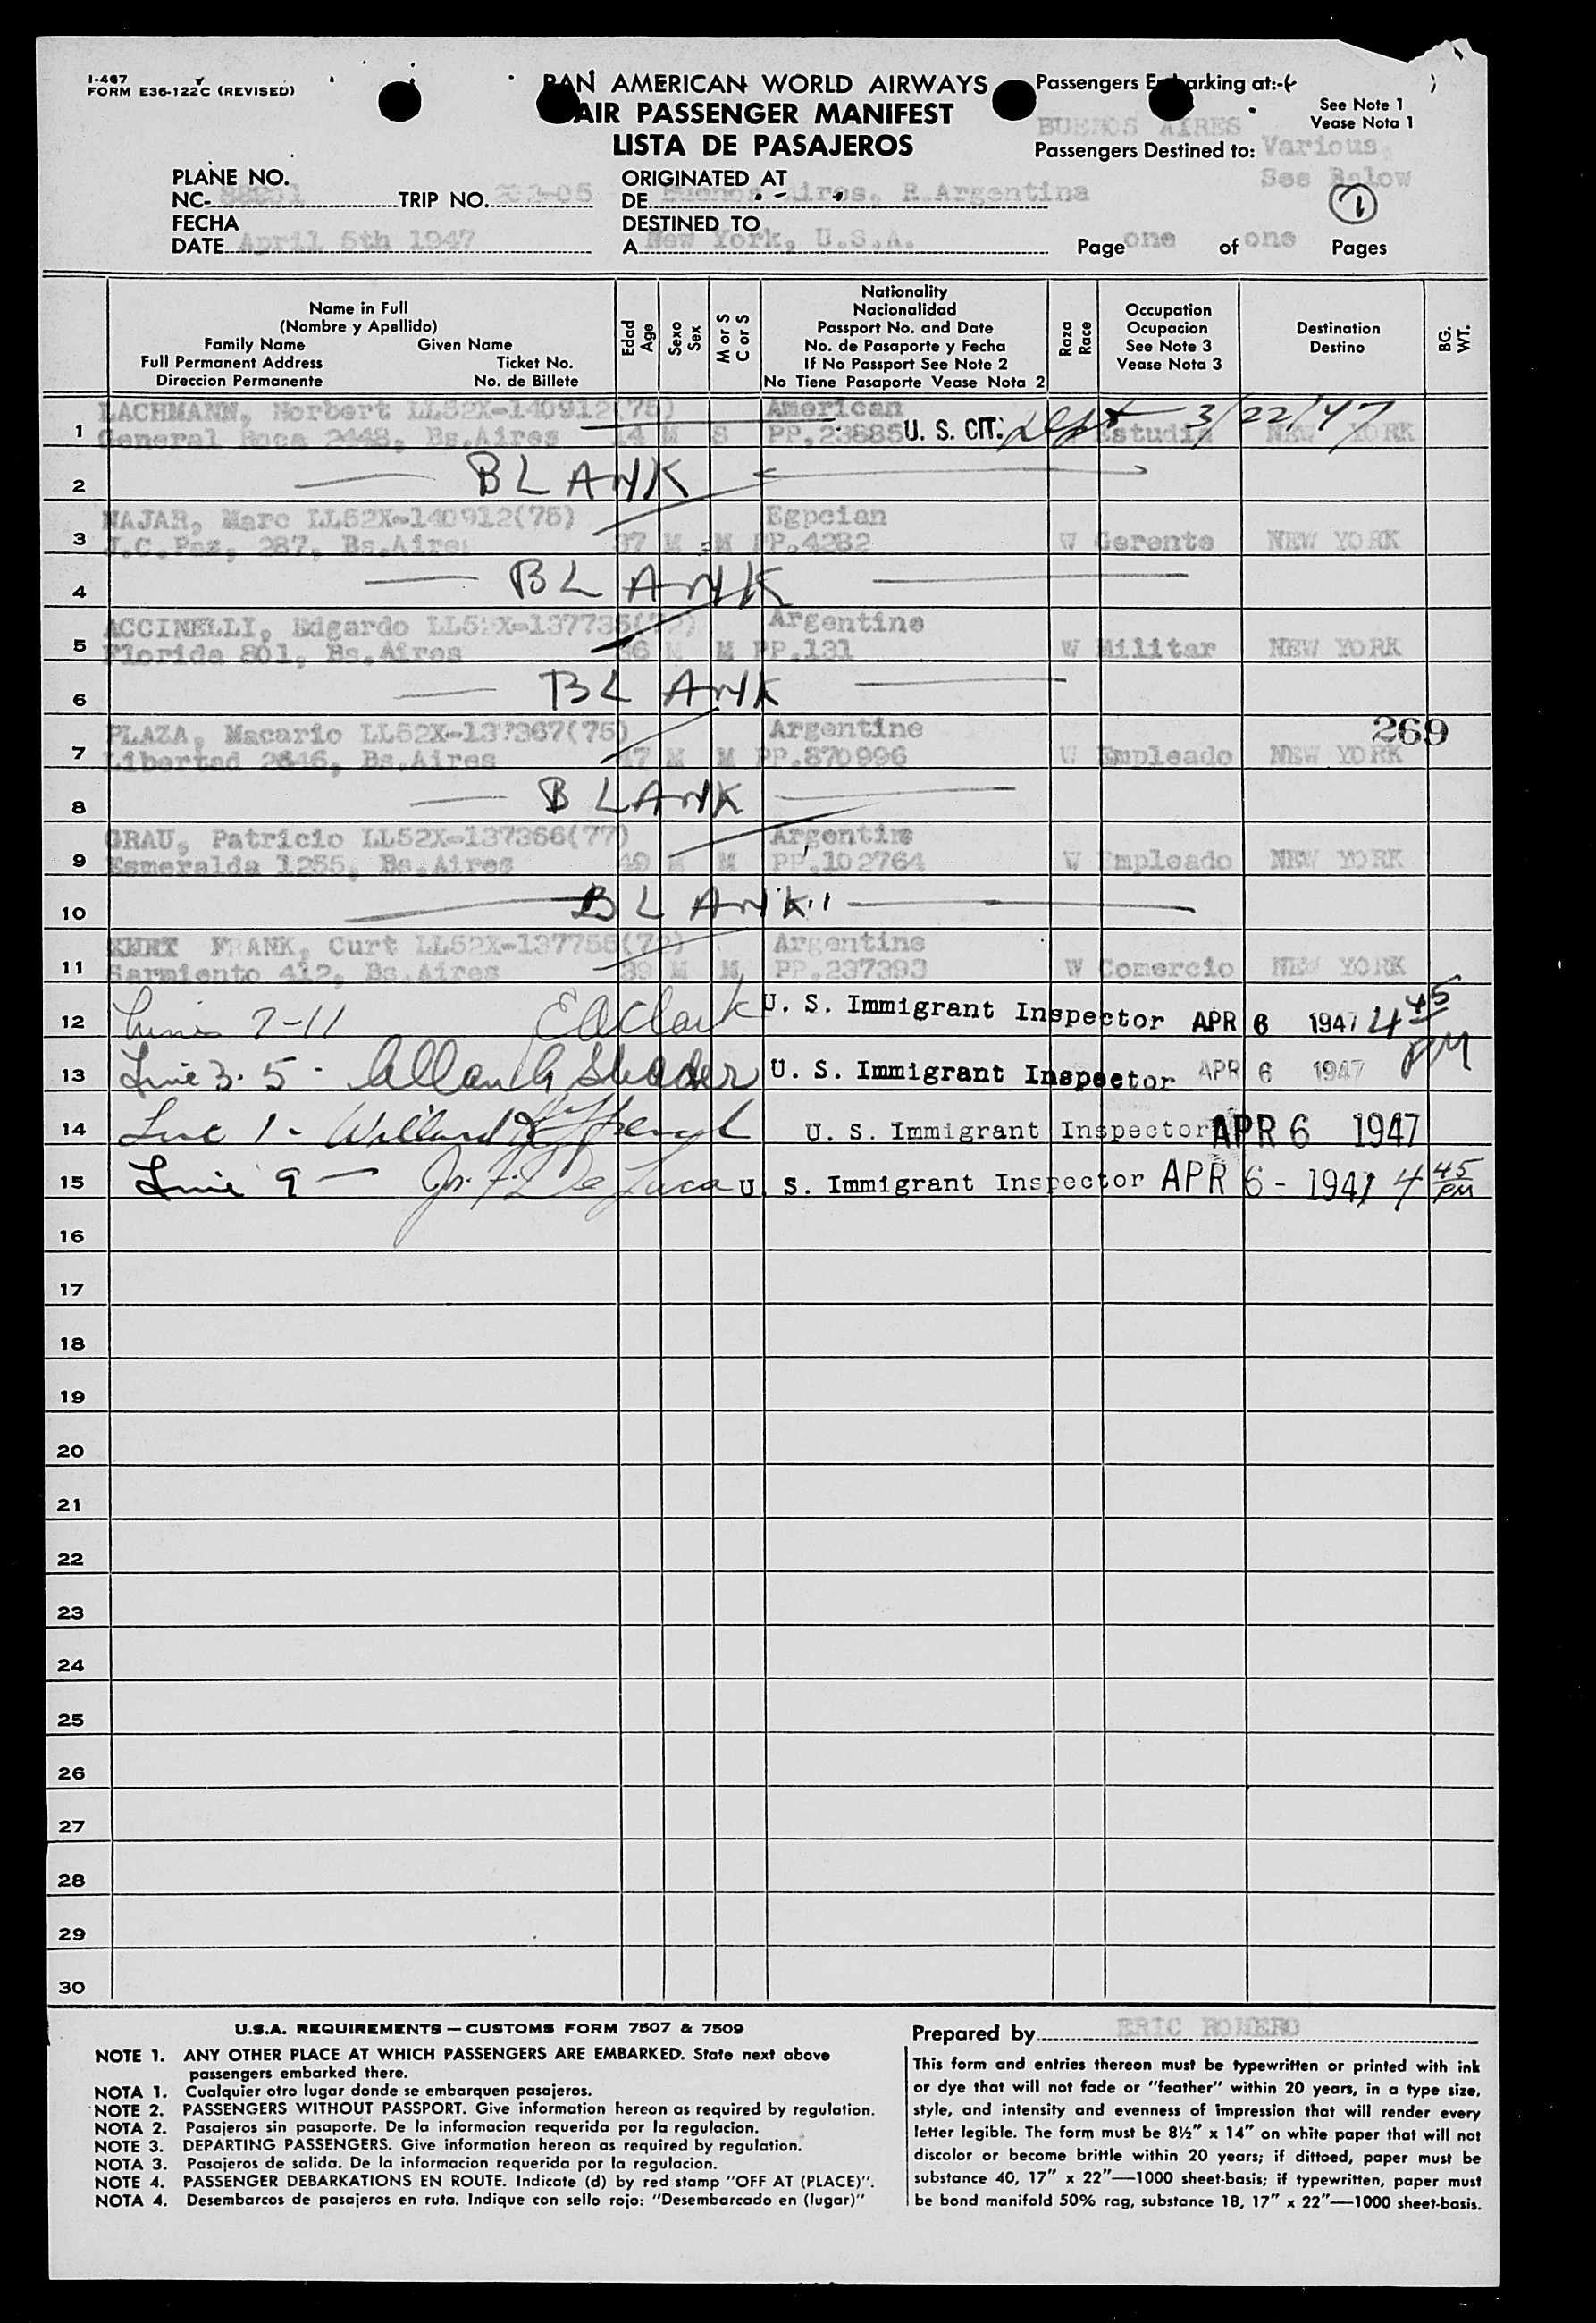 I-467
FORM E36-122C (REVISED)
PAN AMERICAN WORLD AIRWAYS
AIR PASSENGER MANIFEST
LISTA DE PASAJEROS
Passengers Embarking at:-(
)
See Note 1
Vease Nota 1
BUENOS AIRES
Passengers Destined to: Various
See Below
PLANE NO.
NC- TRIP NO. -05
FECHA
DATE April 5th 1947
ORIGINATED AT
DE Buenos Aires, R.Argentina
DESTINED TO
A New York, U.S.A.
1
Page one of one Pages
Name in Full
(Nombre y Apellido)
Family Name Given Name
Full Permanent Address Ticket No.
Direccion Permanente No. de Billete
Edad Age
Sexo Sex
M or S C or S
Nationality
Nacionalidad
Passport No. and Date
No. de Pasaporte y Fecha
If No Passport See Note 2
No Tiene Pasaporte Vease Nota 2
Raza Race
Occupation
Ocupacion
See Note 3
Vease Nota 3
Destination
Destino
BG. WT.
LACHMANN, Norbert LL52X-140912(75) American
1 General Roca 2448, Bs.Aires 14 M S PP.23885 U. S. CIT. Dept 3/22/47 Estudia NEW YORK
2 BLANK
NAJAR, Marc LL52X-140912(75) Egpcian
3 J.C.Paz, 287, Bs.Aires 37 M M PP.4282 W Gerente NEW YORK
4 BLANK
ACCINELLI, Edgardo LL52X-137735( ) Argentine
5 Florida 801, Bs.Aires 46 M M PP.131 W Militar NEW YORK
6 BLANK
PLAZA, Macario LL52X-137367(75) Argentine 269
7 Libertad 2646, Bs.Aires 47 M M PP.870996 W Empleado NEW YORK
8 BLANK
GRAU, Patricio LL52X-137366(77) Argentine
9 Esmeralda 1255, Bs.Aires 49 M M PP.102764 W Empleado NEW YORK
10 BLANK
KURT FRANK, Curt LL52X-137755(72) Argentine
11 Sarmiento 412, Bs.Aires 39 M M PP.237393 W Comercio NEW YORK
12 Lines 7-11 E A Clark U. S. Immigrant Inspector APR 6 1947 4 45 PM
13 Line 3. 5 - Allan U. S. Immigrant Inspector APR 6 1947
14 Line 1 - Willard U. S. Immigrant Inspector APR 6 1947
15 Line 9 - Jos. F. De Luca U. S. Immigrant Inspector APR 6 - 1947 4 45 PM
16
17
18
19
20
21
22
23
24
25
26
27
28
29
30
U.S.A. REQUIREMENTS — CUSTOMS FORM 7507 & 7509
NOTE 1. ANY OTHER PLACE AT WHICH PASSENGERS ARE EMBARKED. State next above
passengers embarked there.
NOTA 1. Cualquier otro lugar donde se embarquen pasajeros.
NOTE 2. PASSENGERS WITHOUT PASSPORT. Give information hereon as required by regulation.
NOTA 2. Pasajeros sin pasaporte. De la informacion requerida por la regulacion.
NOTE 3. DEPARTING PASSENGERS. Give information hereon as required by regulation.
NOTA 3. Pasajeros de salida. De la informacion requerida por la regulacion.
NOTE 4. PASSENGER DEBARKATIONS EN ROUTE. Indicate (d) by red stamp "OFF AT (PLACE)".
NOTA 4. Desembarcos de pasajeros en ruta. Indique con sello rojo: "Desembarcado en (lugar)"
Prepared by ERIC ROMERO
This form and entries thereon must be typewritten or printed with ink
or dye that will not fade or "feather" within 20 years, in a type size,
style, and intensity and evenness of impression that will render every
letter legible. The form must be 8½" x 14" on white paper that will not
discolor or become brittle within 20 years; if dittoed, paper must be
substance 40, 17" x 22"—1000 sheet-basis; if typewritten, paper must
be bond manifold 50% rag, substance 18, 17" x 22"—1000 sheet-basis.